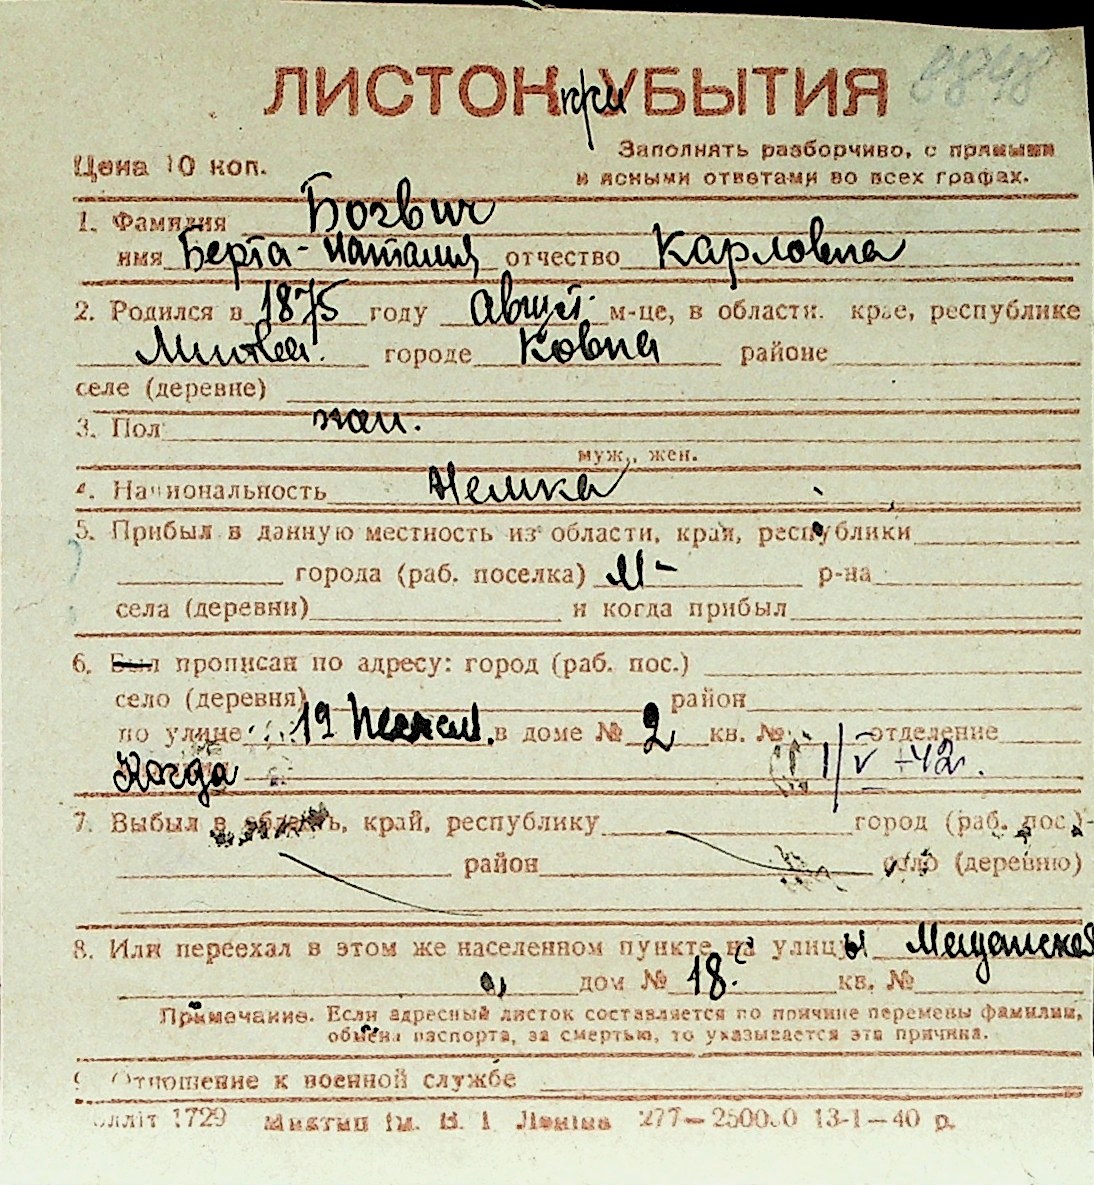 ЛИСТОК при УБЫТИЯ
Цена 10 коп.
Заполнять разборчиво, с прямыми
и ясными ответами во всех графах.
1. Фамилия
имя Берта-Наталия отчество Карловна
2. Родился в 1875 году Август м-це, в области, крае, республике
Литва городе Ковна районе
селе (деревне)
3. Пол жен.
муж., жен.
4. Национальность Немка
5. Прибыл в данную местность из области, края, республики
города (раб. поселка) р-на
села (деревни) и когда прибыл
6. Был прописан по адресу: город (раб. пос.)
село (деревня) район
по улице 19 в доме № 2 кв. № отделение
Когда 1/V-42.
7. Выбыл в область, край, республику город (раб. пос.)
район село (деревню)
8. Или переехал в этом же населенном пункте на улицы Мещанская
дом № 18. кв. №
Примечание. Если адресный листок составляется по причине перемены фамилии,
обмена паспорта, за смертью, то указывается эта причина.
9. Отношение к военной службе
1729 им. В. І. Леніна 277—250000 13-1—40 р.